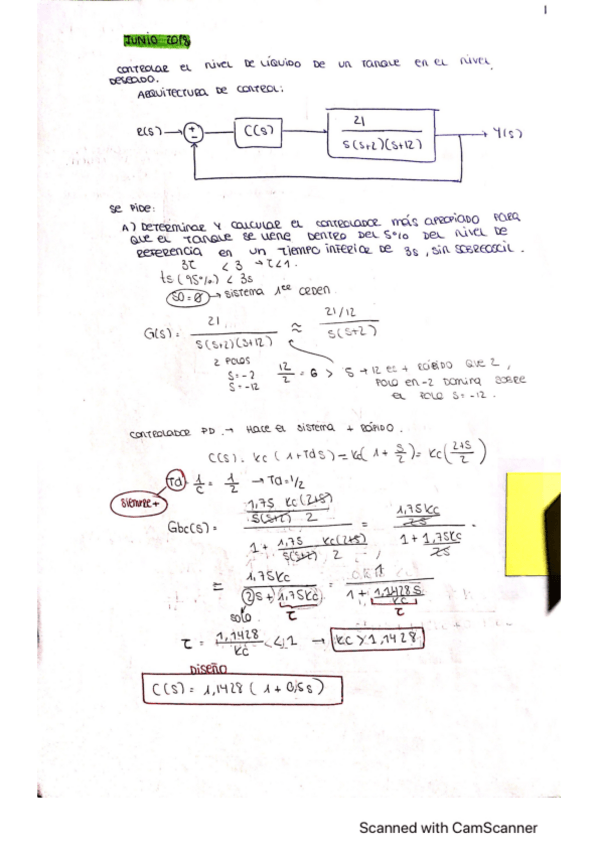 1
JUNIO 2018
CONTROLAR EL NIVEL DE LÍQUIDO DE UN TANQUE EN EL NIVEL
DESEADO.
ARQUITECTURA DE CONTROL:
R(s) + - C(s) 21 / s(s+2)(s+12) Y(s)
SE PIDE:
A) DETERMINAR Y CALCULAR EL CONTROLADOR MÁS APROPIADO PARA
QUE EL TANQUE SE LLENE DENTRO DEL 5% DEL NIVEL DE
REFERENCIA EN UN TIEMPO INFERIOR DE 3s, SIN SOBREOSCIL.
3τ < 3 → τ<1.
ts (95%) < 3s
SO=0 → SISTEMA 1er ORDEN.
G(s): 21 / s(s+2)(s+12) ≈ 21/12 / s(s+2)
2 POLOS
s=-2
s=-12
12/2 = 6 > 5 → 12 es + RÁPIDO QUE 2,
POLO EN -2 DOMINA SOBRE
EL POLO S=-12.
CONTROLADOR PD → HACE EL SISTEMA + RÁPIDO.
C(s). Kc (1+Tds) = Kc(1+ s/2) = Kc(2+s / 2)
Td. 1/c = 1/2 → Td=1/2
SIEMPRE +
Gbc(s) = 1,75 Kc(2+s) / s(s+2) 2 / 1 + 1,75 Kc(2+s) / s(s+2) 2 = 1,75Kc / 2s / 1 + 1,75Kc / 2s
= 1,75Kc / 2s + 1,75Kc = 1 / 1 + 1,1428 s / Kc
SOLO τ τ
τ = 1,1428 / Kc < 1 → Kc > 1,1428
DISEÑO
C(s) = 1,1428 (1 + 0,5s)
Scanned with CamScanner